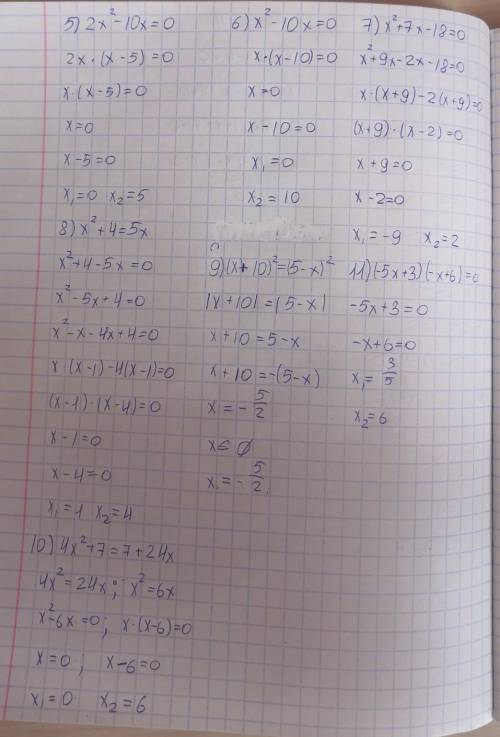 5) 2x²-10x=0
2x·(x-5)=0
x·(x-5)=0
x=0
x-5=0
x₁=0 x₂=5
6) x²-10x=0
x·(x-10)=0
x=0
x-10=0
x₁=0
x₂=10
7) x²+7x-18=0
x²+9x-2x-18=0
x·(x+9)-2(x+9)=0
(x+9)·(x-2)=0
x+9=0
x-2=0
x₁=-9 x₂=2
8) x²+4=5x
x²+4-5x=0
x²-5x+4=0
x²-x-4x+4=0
x·(x-1)-4(x-1)=0
(x-1)·(x-4)=0
x-1=0
x-4=0
x₁=1 x₂=4
9) (x+10)²=(5-x)²
|x+10|=|5-x|
x+10=5-x
x+10=-(5-x)
x=-5/2
x∈∅
x₁=-5/2
11) (-5x+3)(-x+6)=0
-5x+3=0
-x+6=0
x₁=3/5
x₂=6
10) 4x²+7=7+24x
4x²=24x; x²=6x
x²-6x=0; x·(x-6)=0
x=0; x-6=0
x₁=0 x₂=6